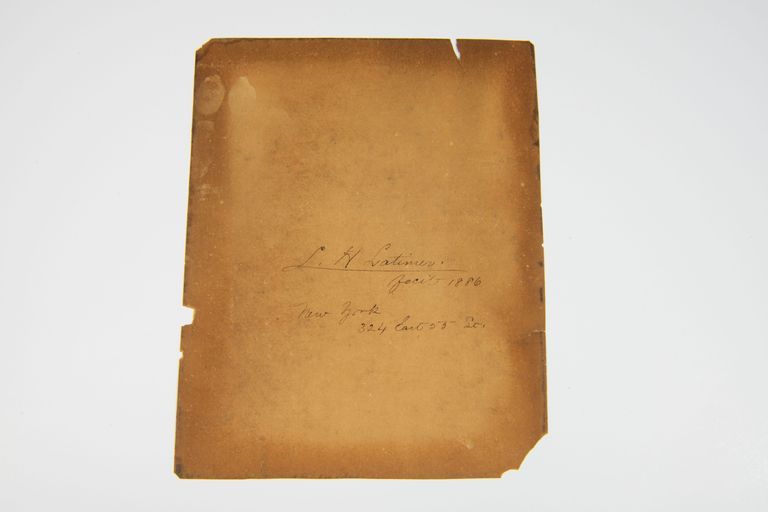 L. H Latimer.
fecit 1886
New York
324 East, 55 St.